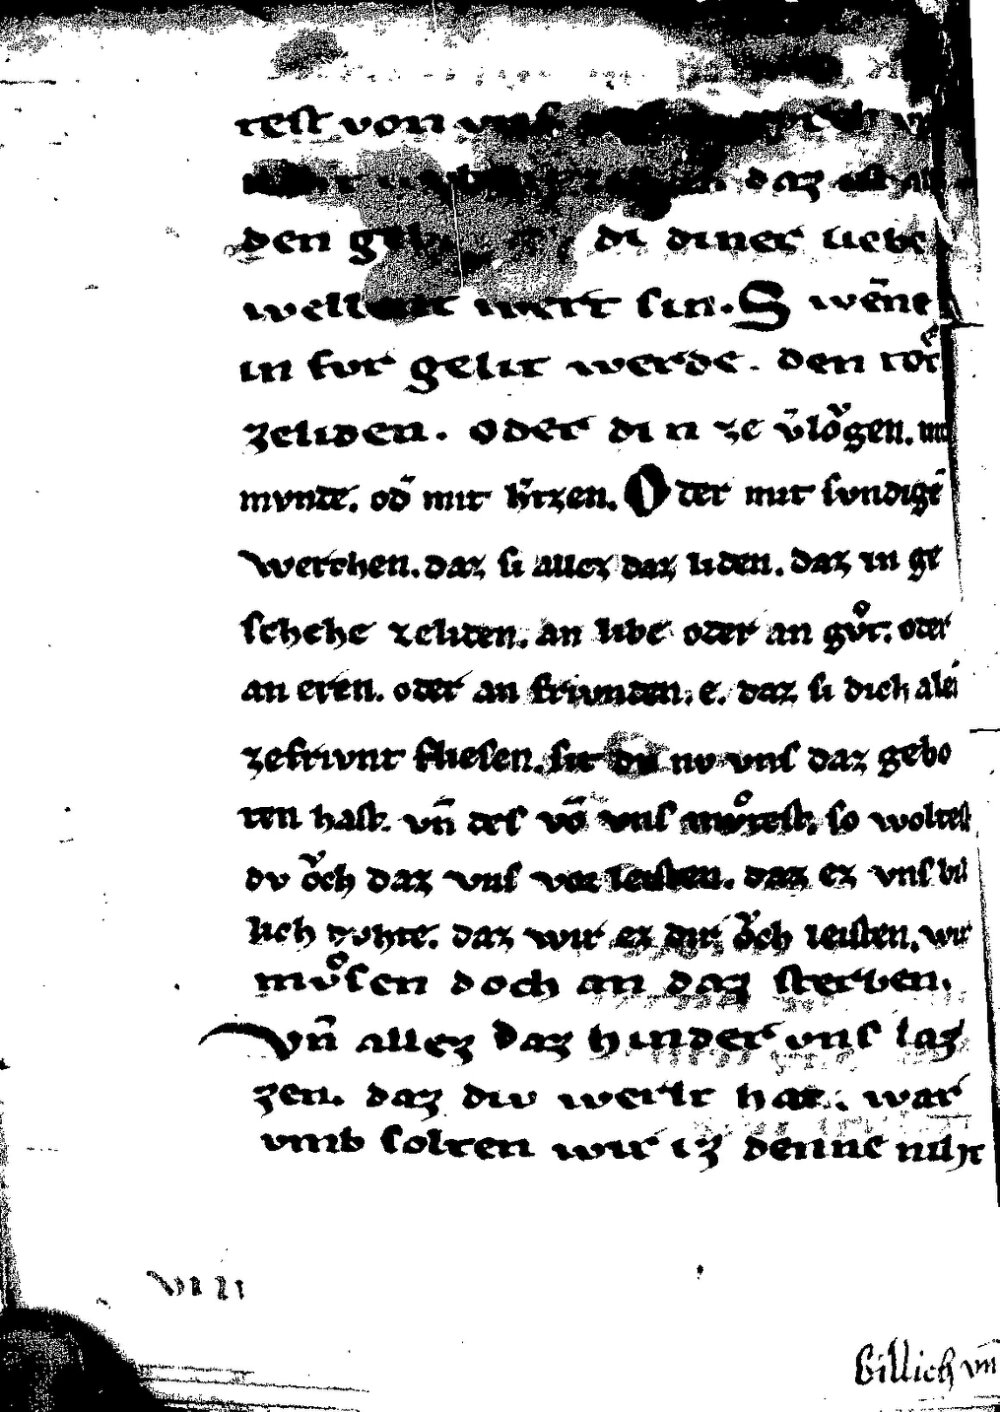 test von vns
daz
den di diner liebe
wellent wert sin. S wēne
in fvr gelit werde. den toͤt
zeliden. oder din ze v̄loͮgen. mit
mvnde. od̄ mit h̄rzen. Oder mit svndigē
werchen. daz si allez daz liden. daz in ge
schehe zeliden. an libe oder an gvͦt. oder
an eren. oder an frivnden. e. daz si dich alei
zefrivnt fliesen. sit dv nv vns daz gebo
ten hast. vn̄ des vō vns mvͦtest. so woltest
dv oͮch daz vns vor leisten. daz ez vns bil
lich dvhte. daz wir ez dir oͮch leisten. wir
mvͦsen doch an daz sterben.
vn̄ allez daz hinder vns laz
zen. daz div werlt hat. war
vmb solten wir iz denne niht
VIII
billich vn̄